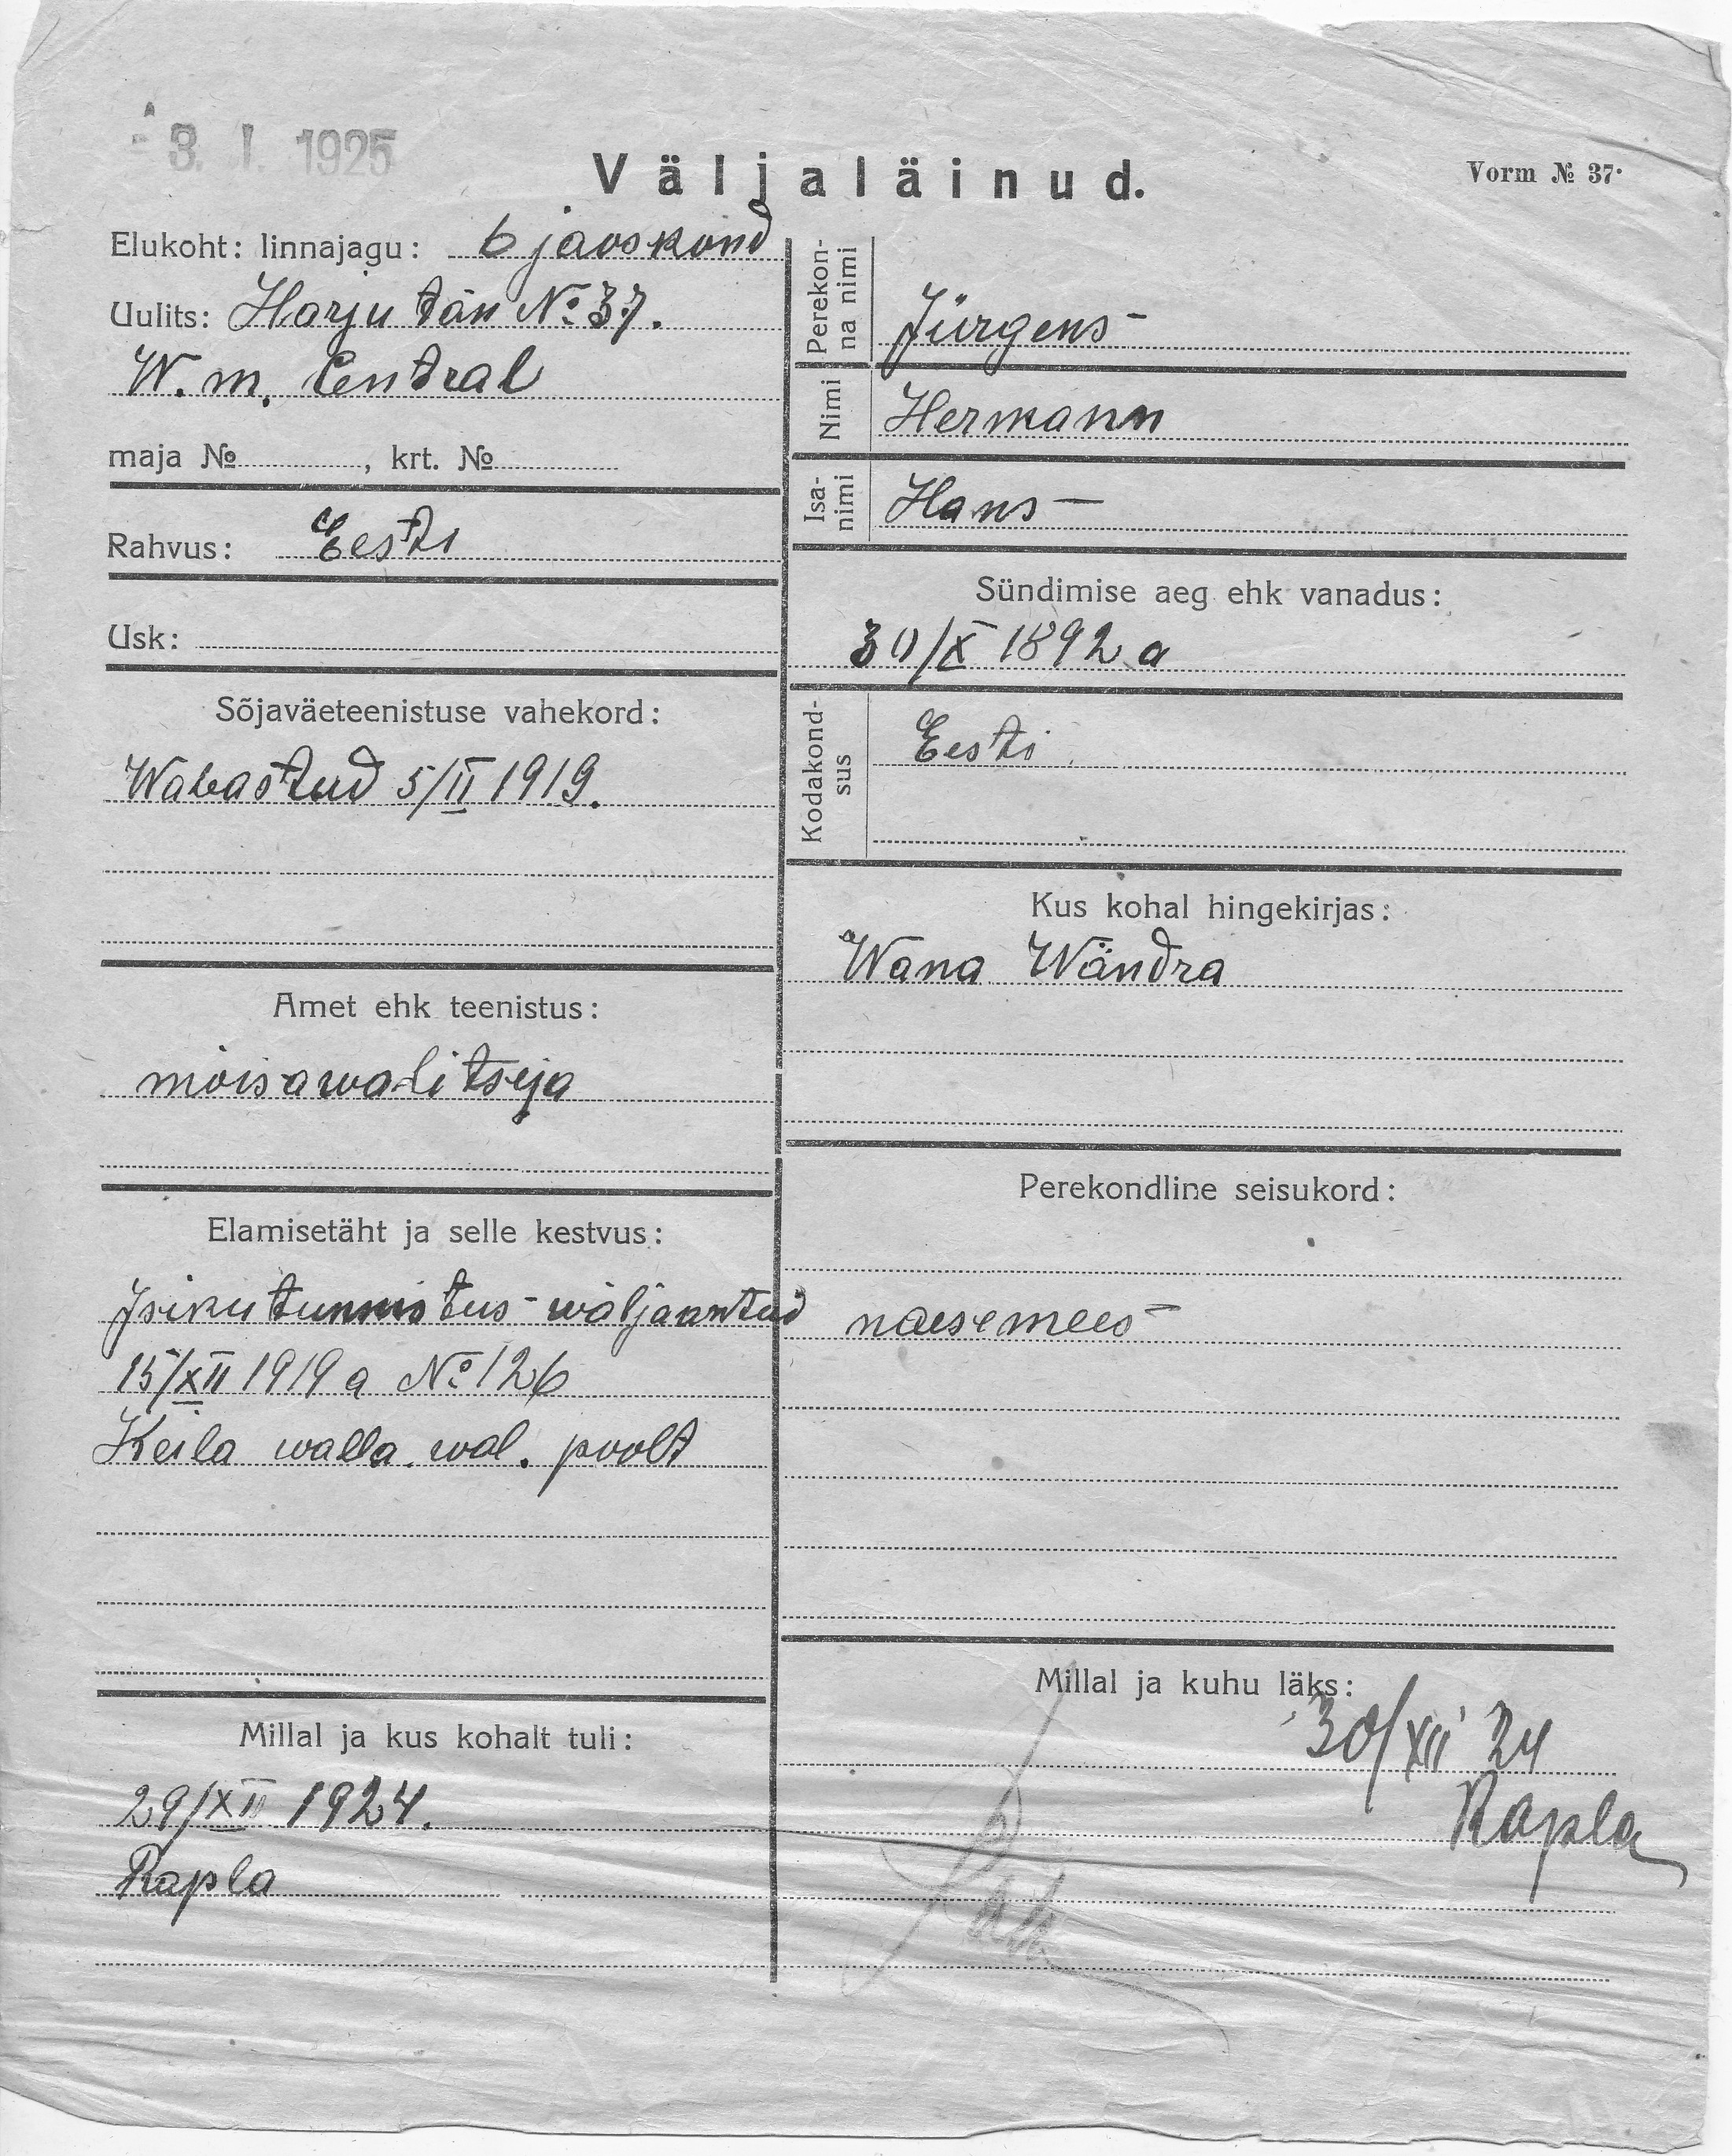 3. I. 1925
Väljaläinud.
Vorm № 37.
Elukoht: linnajagu: 6 jaoskond
Uulits: Harju tän No 37.
W. m. Central
maja № , krt. №
Rahvus: Eesti
Usk:
Sõjaväeteenistuse vahekord:
Wabastud 5/II 1919.
Amet ehk teenistus:
mõisawalitseja
Elamisetäht ja selle kestvus:
Isikutunnistus - wäljaantud
15/XII 1919 a No 126
Keila walla wal. poolt
Millal ja kus kohalt tuli:
29/XII 1924.
Rapla
Perekon-
na nimi
Jürgens -
Nimi
Hermann
Isa-
nimi
Hans —
Sündimise aeg ehk vanadus:
30/X 1892 a
Kodakond-
sus
Eesti
Kus kohal hingekirjas:
Wana Wändra
Perekondline seisukord:
naesemees -
Millal ja kuhu läks:
30/XII 24
Rapla